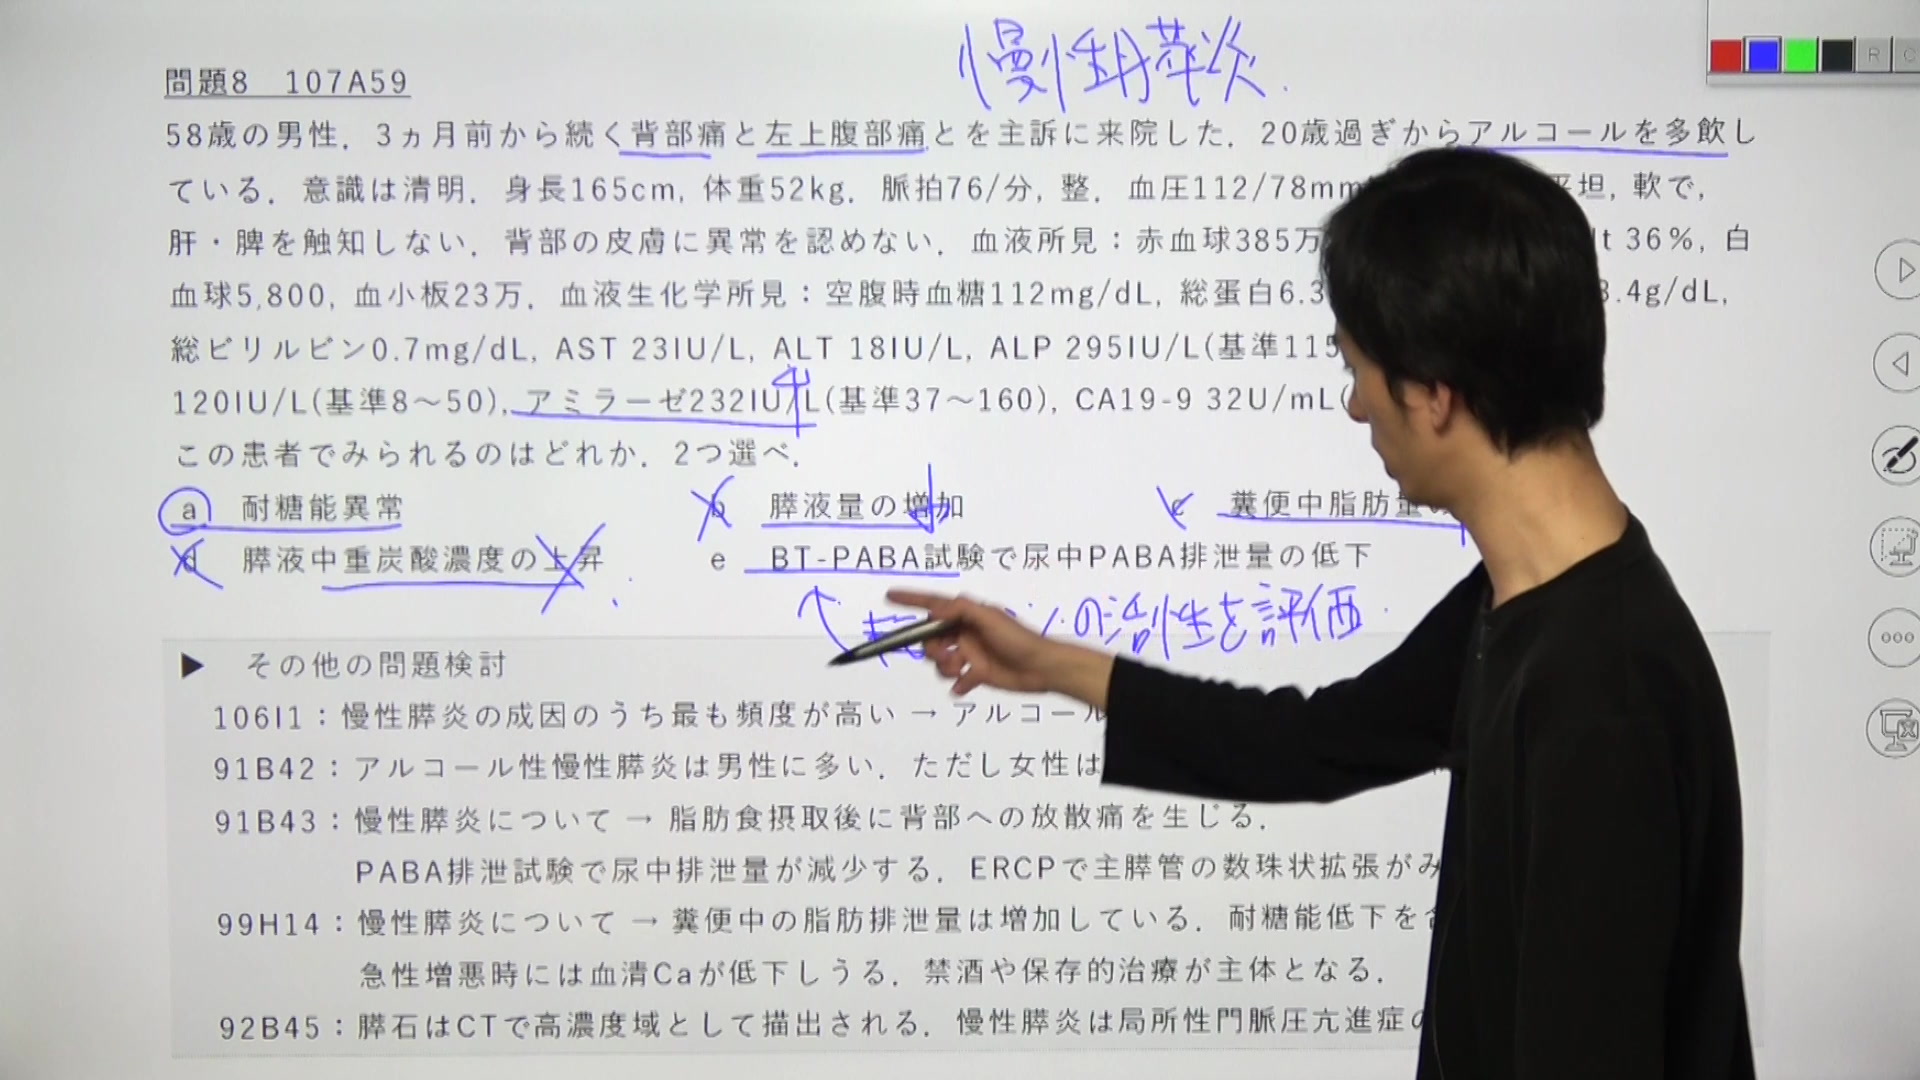 慢性膵炎.
問題8 107A59
58歳の男性．3ヵ月前から続く背部痛と左上腹部痛とを主訴に来院した．20歳過ぎからアルコールを多飲し
ている．意識は清明．身長165cm, 体重52kg．脈拍76/分, 整．血圧112/78mm 平坦, 軟で,
肝・脾を触知しない．背部の皮膚に異常を認めない．血液所見：赤血球385万 t 36%, 白
血球5,800, 血小板23万．血液生化学所見：空腹時血糖112mg/dL, 総蛋白6.3 .4g/dL,
総ビリルビン0.7mg/dL, AST 23IU/L, ALT 18IU/L, ALP 295IU/L(基準115
120IU/L(基準8～50), アミラーゼ232IU/L(基準37～160), CA19-9 32U/mL(
この患者でみられるのはどれか．2つ選べ．
a 耐糖能異常 b 膵液量の増加 c 糞便中脂肪量
d 膵液中重炭酸濃度の上昇 e BT-PABA試験で尿中PABA排泄量の低下
の活性を評価.
▶ その他の問題検討
106I1：慢性膵炎の成因のうち最も頻度が高い → アルコール
91B42：アルコール性慢性膵炎は男性に多い．ただし女性は
91B43：慢性膵炎について → 脂肪食摂取後に背部への放散痛を生じる．
PABA排泄試験で尿中排泄量が減少する．ERCPで主膵管の数珠状拡張がみ
99H14：慢性膵炎について → 糞便中の脂肪排泄量は増加している．耐糖能低下を
急性増悪時には血清Caが低下しうる．禁酒や保存的治療が主体となる．
92B45：膵石はCTで高濃度域として描出される．慢性膵炎は局所性門脈圧亢進症の